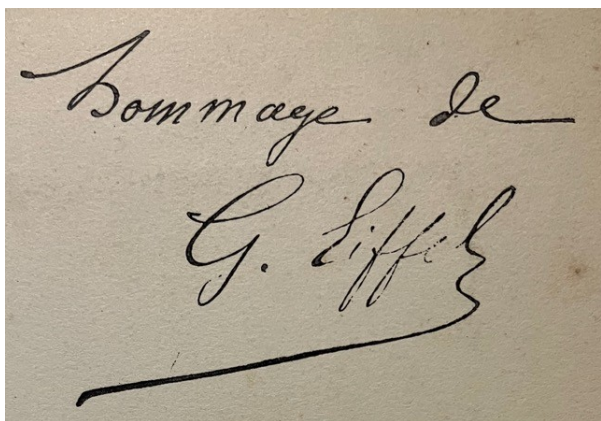 hommage de
G. Eiffel